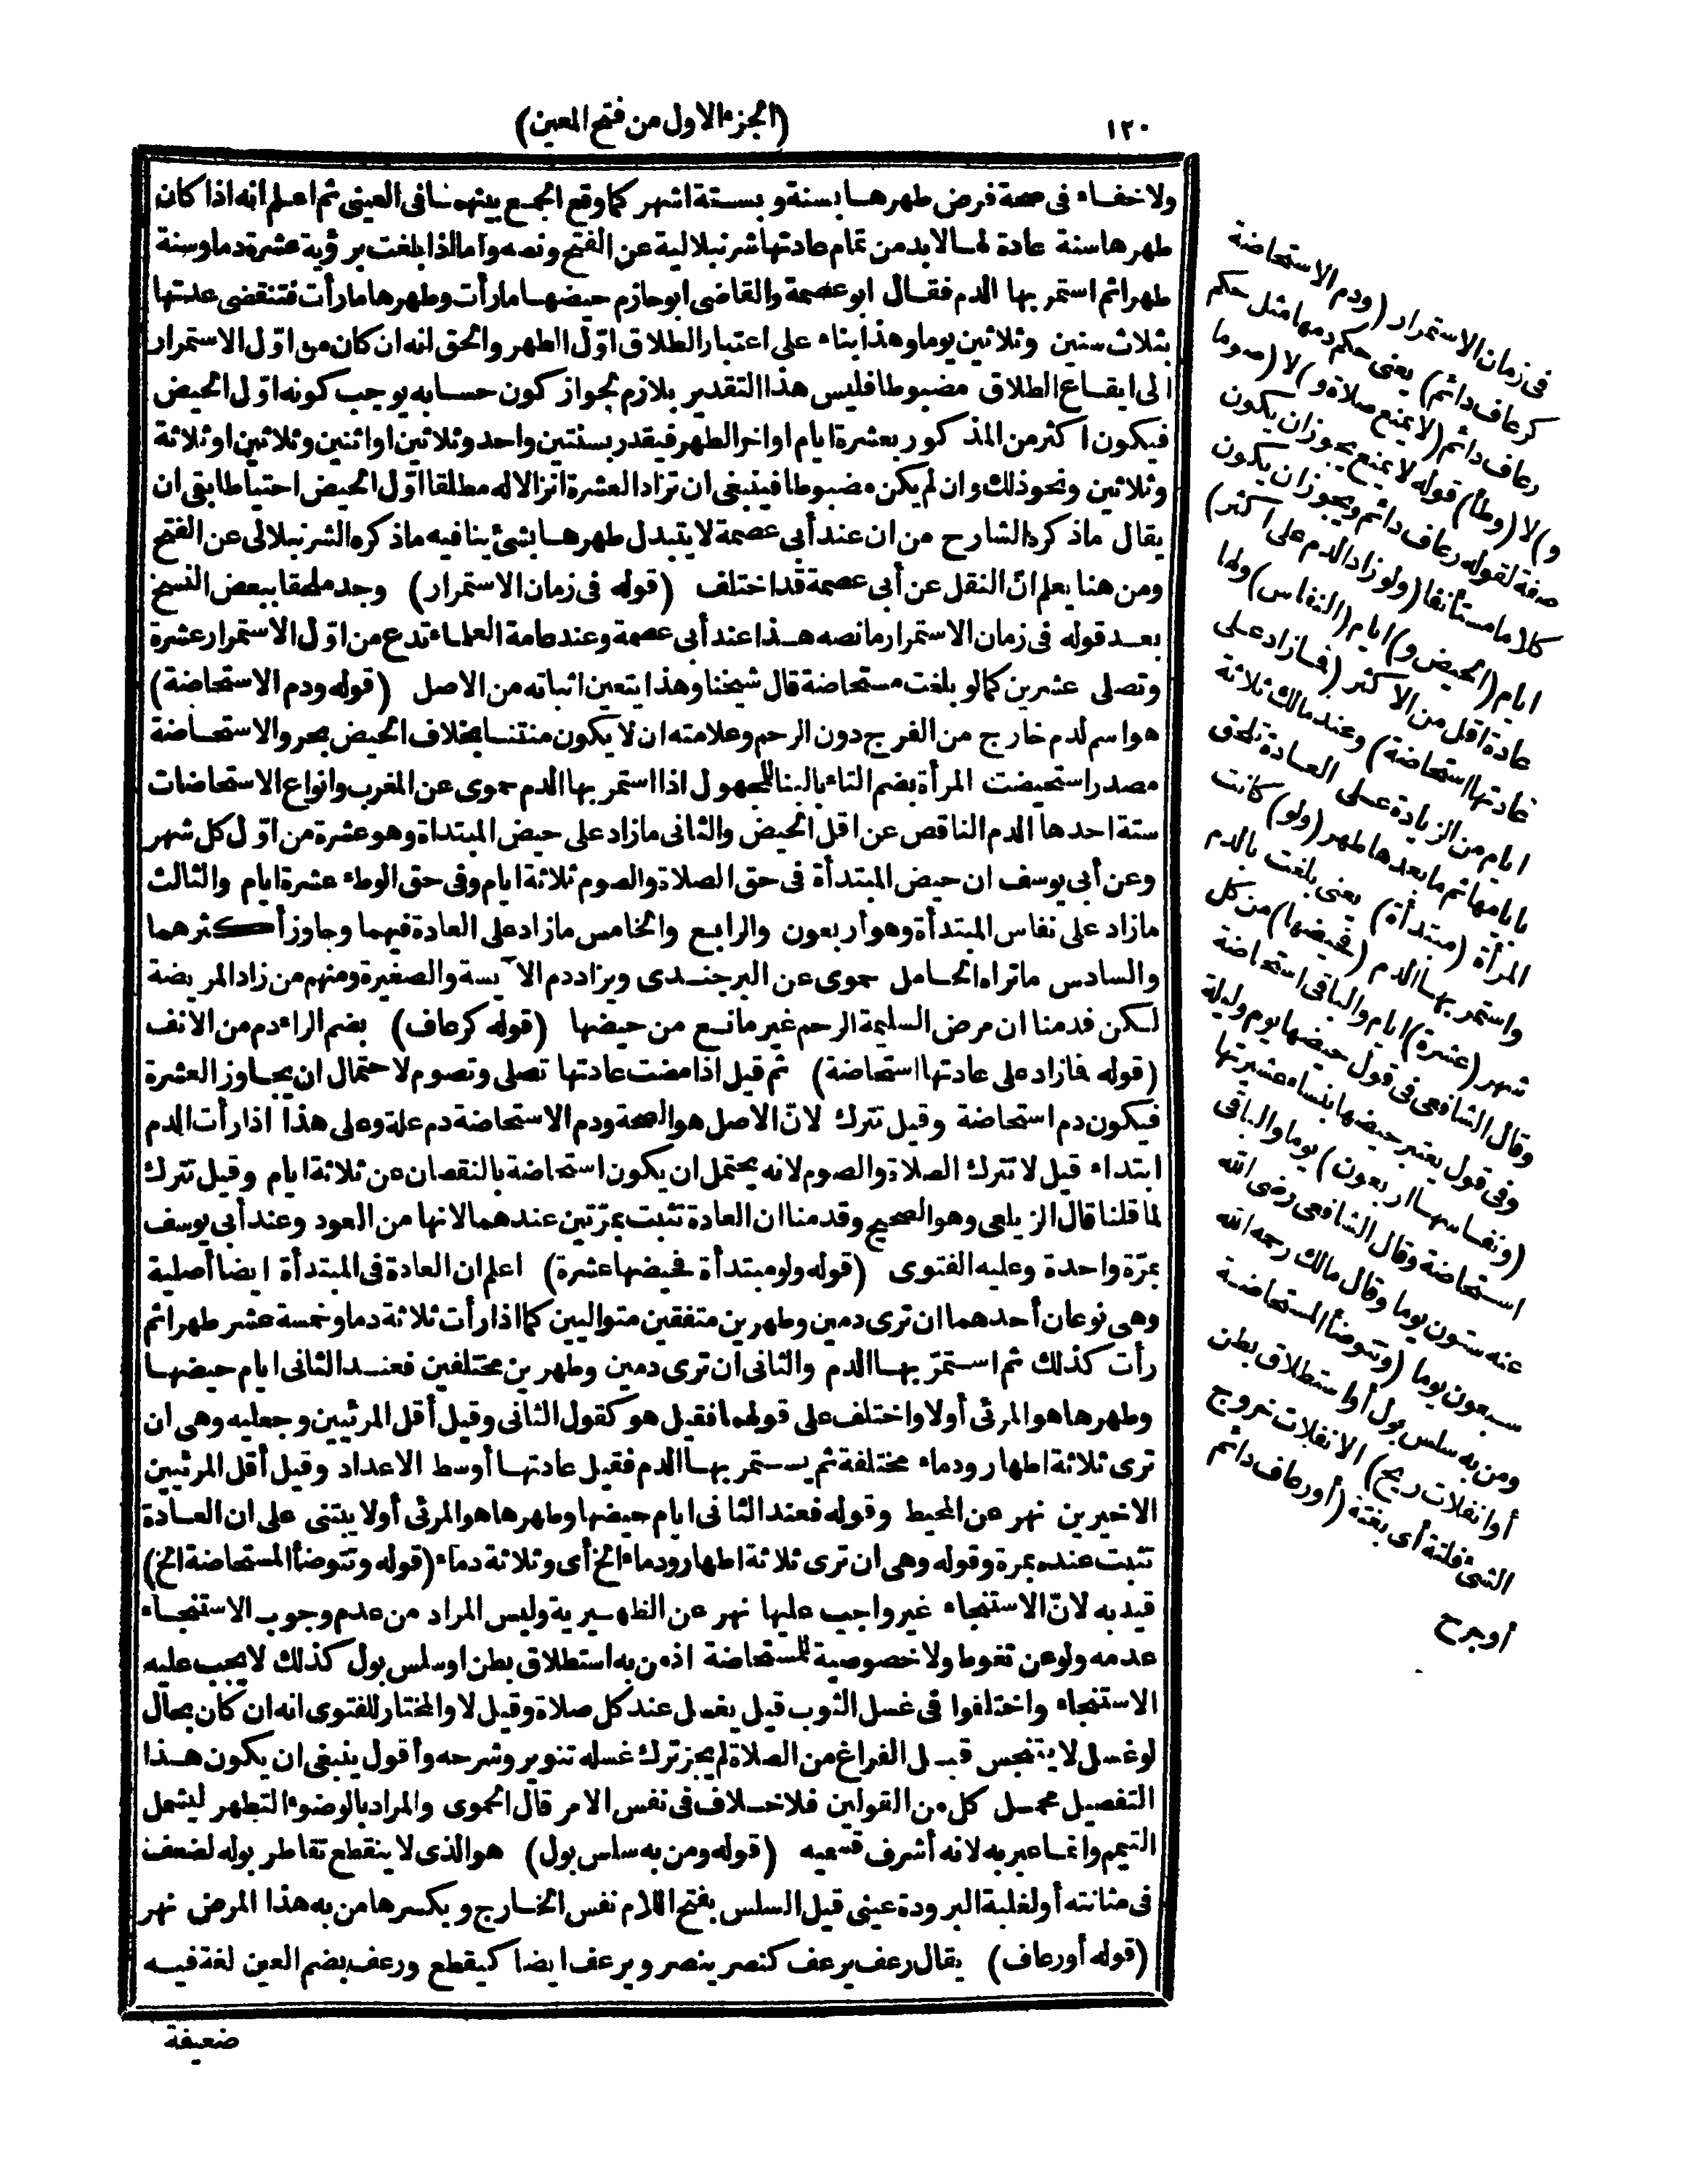 ١٢٠
(الجزء الاول من فتح المعين)
ولا خفاء فى صحة فرض طهرها بسنة وبستة اشهر كما وقع الجمع بينهما فى العينى ثم اعلم انه اذا كان
طهرها سنة عادة لها لابد من تمام عادتها شرنبلالية عن الفتح ونصه وأما اذا بلغت برؤية عشرة دما وسنة
طهرا ثم استمر بها الدم فقال ابو عصمة والقاضى ابو حازم حيضها مارأت وطهرها مارأت فتنقضى عدتها
بثلاث سنين وثلاثين يوما وهذا بناء على اعتبار الطلاق اوّل الطهر والحق انه ان كان من اوّل الاستمرار
الى ايقاع الطلاق مضبوطا فليس هذا التقدير بلازم لجواز كون حسابه يوجب كونه اوّل الحيض
فيكون اكثر من المذكور بعشرة ايام او اخر الطهر فيقدر بسنتين واحد وثلاثين او اثنين وثلاثين او ثلاثة
وثلاثين ونحو ذلك وان لم يكن مضبوطا فينبغى ان تزاد العشرة انزالا له مطلقا اوّل الحيض احتياطا بقى ان
يقال ماذكره الشارح من ان عند أبى عصمة لا يتبدل طهرها بشئ ينافيه ماذكره الشرنبلالى عن الفتح
ومن هنا يعلم انّ النقل عن أبى عصمة قد اختلف (قوله فى زمان الاستمرار) وجد ملحقا ببعض النسخ
بعد قوله فى زمان الاستمرار مانصه هذا عند أبى عصمة وعند عامة العلماء تدع من اوّل الاستمرار عشرة
وتصلى عشرين كما لو بلغت مستحاضة قال شيخنا وهذا يتعين اثباته من الاصل (قوله ودم الاستحاضة)
هو اسم لدم خارج من الفرج دون الرحم وعلامته ان لا يكون منتنا بخلاف الحيض بحر والاستحاضة
مصدر استحيضت المرأة بضم التاء بالبنا للمجهول اذا استمر بها الدم حموى عن المغرب وانواع الاستحاضات
ستة احدها الدم الناقص عن اقل الحيض والثانى مازاد على حيض المبتدأة وهو عشرة من اوّل كل شهر
وعن أبى يوسف ان حيض المبتدأة فى حق الصلاة والصوم ثلاثة ايام وفى حق الوطء عشرة ايام والثالث
مازاد على نفاس المبتدأة وهو أربعون والرابع والخامس مازاد على العادة فيهما وجاوز أكثرهما
والسادس ماتراه الحامل حموى عن البرجندى ويزاد دم الآيسة والصغيرة ومنهم من زاد المريضة
لكن قدمنا ان مرض السليمة الرحم غير مانع من حيضها (قوله كرعاف) بضم الراء دم من الانف
(قوله فازاد على عادتها استحاضة) ثم قيل اذا مضت عادتها تصلى وتصوم لاحتمال ان يجاوز العشرة
فيكون دم استحاضة وقيل تترك لانّ الاصل هو الصحة ودم الاستحاضة دم علة وعلى هذا اذا رأت الدم
ابتداء قيل لا تترك الصلاة والصوم لانه يحتمل ان يكون استحاضة بالنقصان عن ثلاثة ايام وقيل تترك
لما قلنا قال الزيلعى وهو الصحيح وقدمنا ان العادة تثبت بمرّتين عندهما لانها من العود وعند أبى يوسف
بمرّة واحدة وعليه الفتوى (قوله ولو مبتدأة فحيضها عشرة) اعلم ان العادة فى المبتدأة ايضا أصلية
وهى نوعان أحدهما ان ترى دمين وطهرين متفقين متواليين كما اذا رأت ثلاثة دما وخمسة عشر طهرا ثم
رأت كذلك ثم استمرّ بها الدم والثانى ان ترى دمين وطهرين مختلفين فعند الثانى ايام حيضها
وطهرها هو المرئى أولا واختلف على قولهما فقيل هو كقول الثانى وقيل أقل المرئيين وجعليه وهى ان
ترى ثلاثة اطهار ودماء مختلفة ثم يستمر بها الدم فقيل عادتها أوسط الاعداد وقيل أقل المرئيين
الاخيرين نهر عن المحيط وقوله فعند الثانى ايام حيضها وطهرها هو المرئى أولا يبتنى على ان العادة
تثبت عنده بمرة وقوله وهى ان ترى ثلاثة اطهار ودماء الخ أى وثلاثة دماء (قوله وتتوضأ المستحاضة الخ)
قيد به لانّ الاستنجاء غير واجب عليها نهر عن الظهيرية وليس المراد من عدم وجوب الاستنجاء
عدمه ولو عن تغوط ولا خصوصية للمستحاضة اذ من به استطلاق بطن او سلس بول كذلك لا يجب عليه
الاستنجاء واختلفوا فى غسل الثوب قيل يغسل عند كل صلاة وقيل لا والمختار للفتوى انه ان كان بحال
لو غسل لا يتنجس قبل الفراغ من الصلاة لم يجز ترك غسله تنوير وشرحه وأقول ينبغى ان يكون هذا
التفصيل محمل كل من القولين فلا خلاف فى نفس الامر قال الحموى والمراد بالوضوء التطهر ليشمل
التيمم وانما عبر به لانه أشرف قسميه (قوله ومن به سلس بول) هو الذى لا ينقطع تقاطر بوله لضعف
فى مثانته أو لغلبة البرودة عينى قيل السلس بفتح اللام نفس الخارج وبكسرها من به هذا المرض نهر
(قوله أو رعاف) يقال رعف يرعف كنصر ينصر ويرعف ايضا كيقطع ورعف بضم العين لغة فيه
ضعيفة
فى زمان الاستمرار (ودم الاستحاضة
كرعاف دائم) يعنى حكم دمها مثل حكم
رعاف دائم (لا يمنع صلاة و) لا (صوما
و) لا (وطأ) قوله لا يمنع يجوز ان يكون
صفة لقوله رعاف دائم ويجوز ان يكون
كلاما مستأنفا (ولو زاد الدم على اكثر)
ايام (الحيض و) ايام (النفاس) ولها
عادة اقل من الاكثر (فما زاد على
عادتها استحاضة) وعند مالك ثلاثة
ايام من الزيادة على العادة تلحق
بايامها ثم ما بعدها طهر (ولو) كانت
المرأة (مبتدأة) يعنى بلغت بالدم
واستمر بها الدم (فحيضها) من كل
شهر (عشرة) ايام والباقى استحاضة
وقال الشافعى فى قول حيضها يوم وليلة
وفى قول يعتبر حيضها بنساء عشيرتها
(ونفاسها اربعون) يوما والباقى
استحاضة وقال الشافعى رضى الله
عنه ستون يوما وقال مالك رحمه الله
سبعون يوما (وتتوضأ المستحاضة
ومن به سلس بول أو استطلاق بطن
أو انفلات ريح) الانفلات خروج
الشئ فلتة أى بغتة (أو رعاف دائم
أو جرح